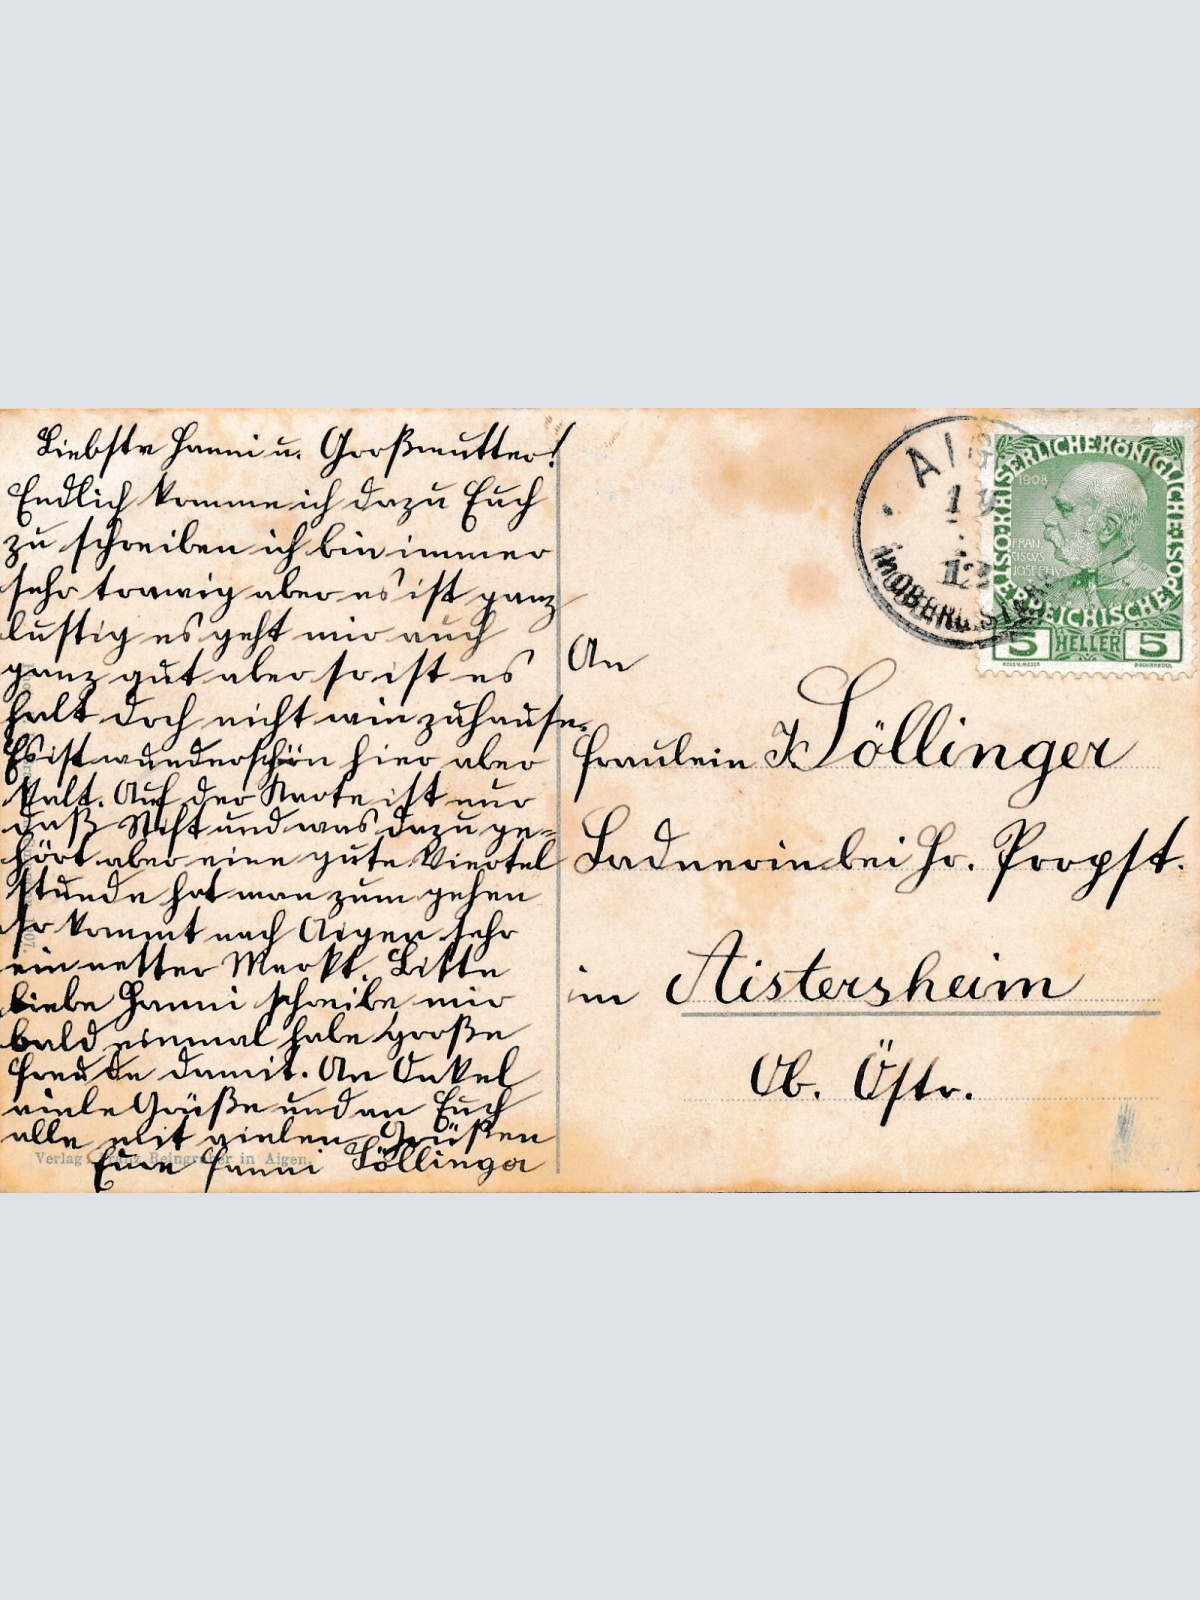 Liebste Hanni u. Großmutter!
Endlich komme ich dazu Euch
zu schreiben ich bin immer
sehr traurig aber es ist ganz
lustig es geht mir auch
ganz gut aber so ist es
halt doch nicht wie zuhause.
Es ist wunderschön hier aber
kalt. Auf der Karte ist nur
daß Stift und was dazu ge-
hört aber eine gute Viertel
stunde hat man zum gehen
so kommt nach Aigen sehr
ein netter Markt. Bitte
liebe Hanni schreibe mir
bald einmal habe große
Freude damit. An Onkel
viele Grüße und an Euch
alle mit vielen Grüßen
Eure Fanni Söllinger
Verlag Franz Beingruber in Aigen.
AIG
19
12
IN OBERÖST
KAISERLICHE KÖNIGLICHE ÖSTERREICHISCHE POST
1908
FRAN
CISCVS
JOSEPHVS
5 HELLER 5
An
Fräulein J. Söllinger
Ladnerin bei Hr. Propst.
in Aistersheim
Ob. Östr.